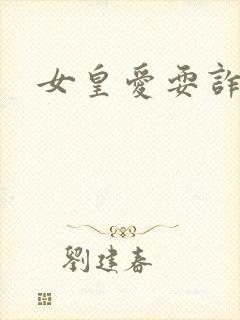 女皇愛耍詐
劉建春